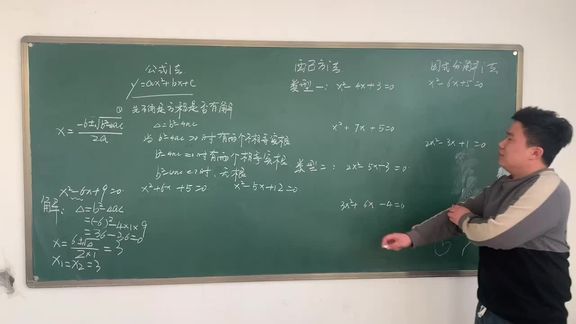 公式法
y=ax²+bx+c
① 先确定方程是否有解
x=(-b±√b²-4ac)/2a
△=b²-4ac
当 b²-4ac>0时有两个不相等实根
b²-4ac=0时有两个相等实根
b²-4ac<0时,无根
x²-6x+9=0
x²+6x+5=0
x²-5x+12=0
解: △=b²-4ac
=(-6)²-4×1×9
=36-36=0
x=(6±√0)/2×1=3
x₁=x₂=3
配方法
类型一: x²-4x+3=0
x²+7x+5=0
类型二: 2x²-5x-3=0
3x²+6x-4=0
因式分解法
x²-6x+5=0
2x²-3x+1=0